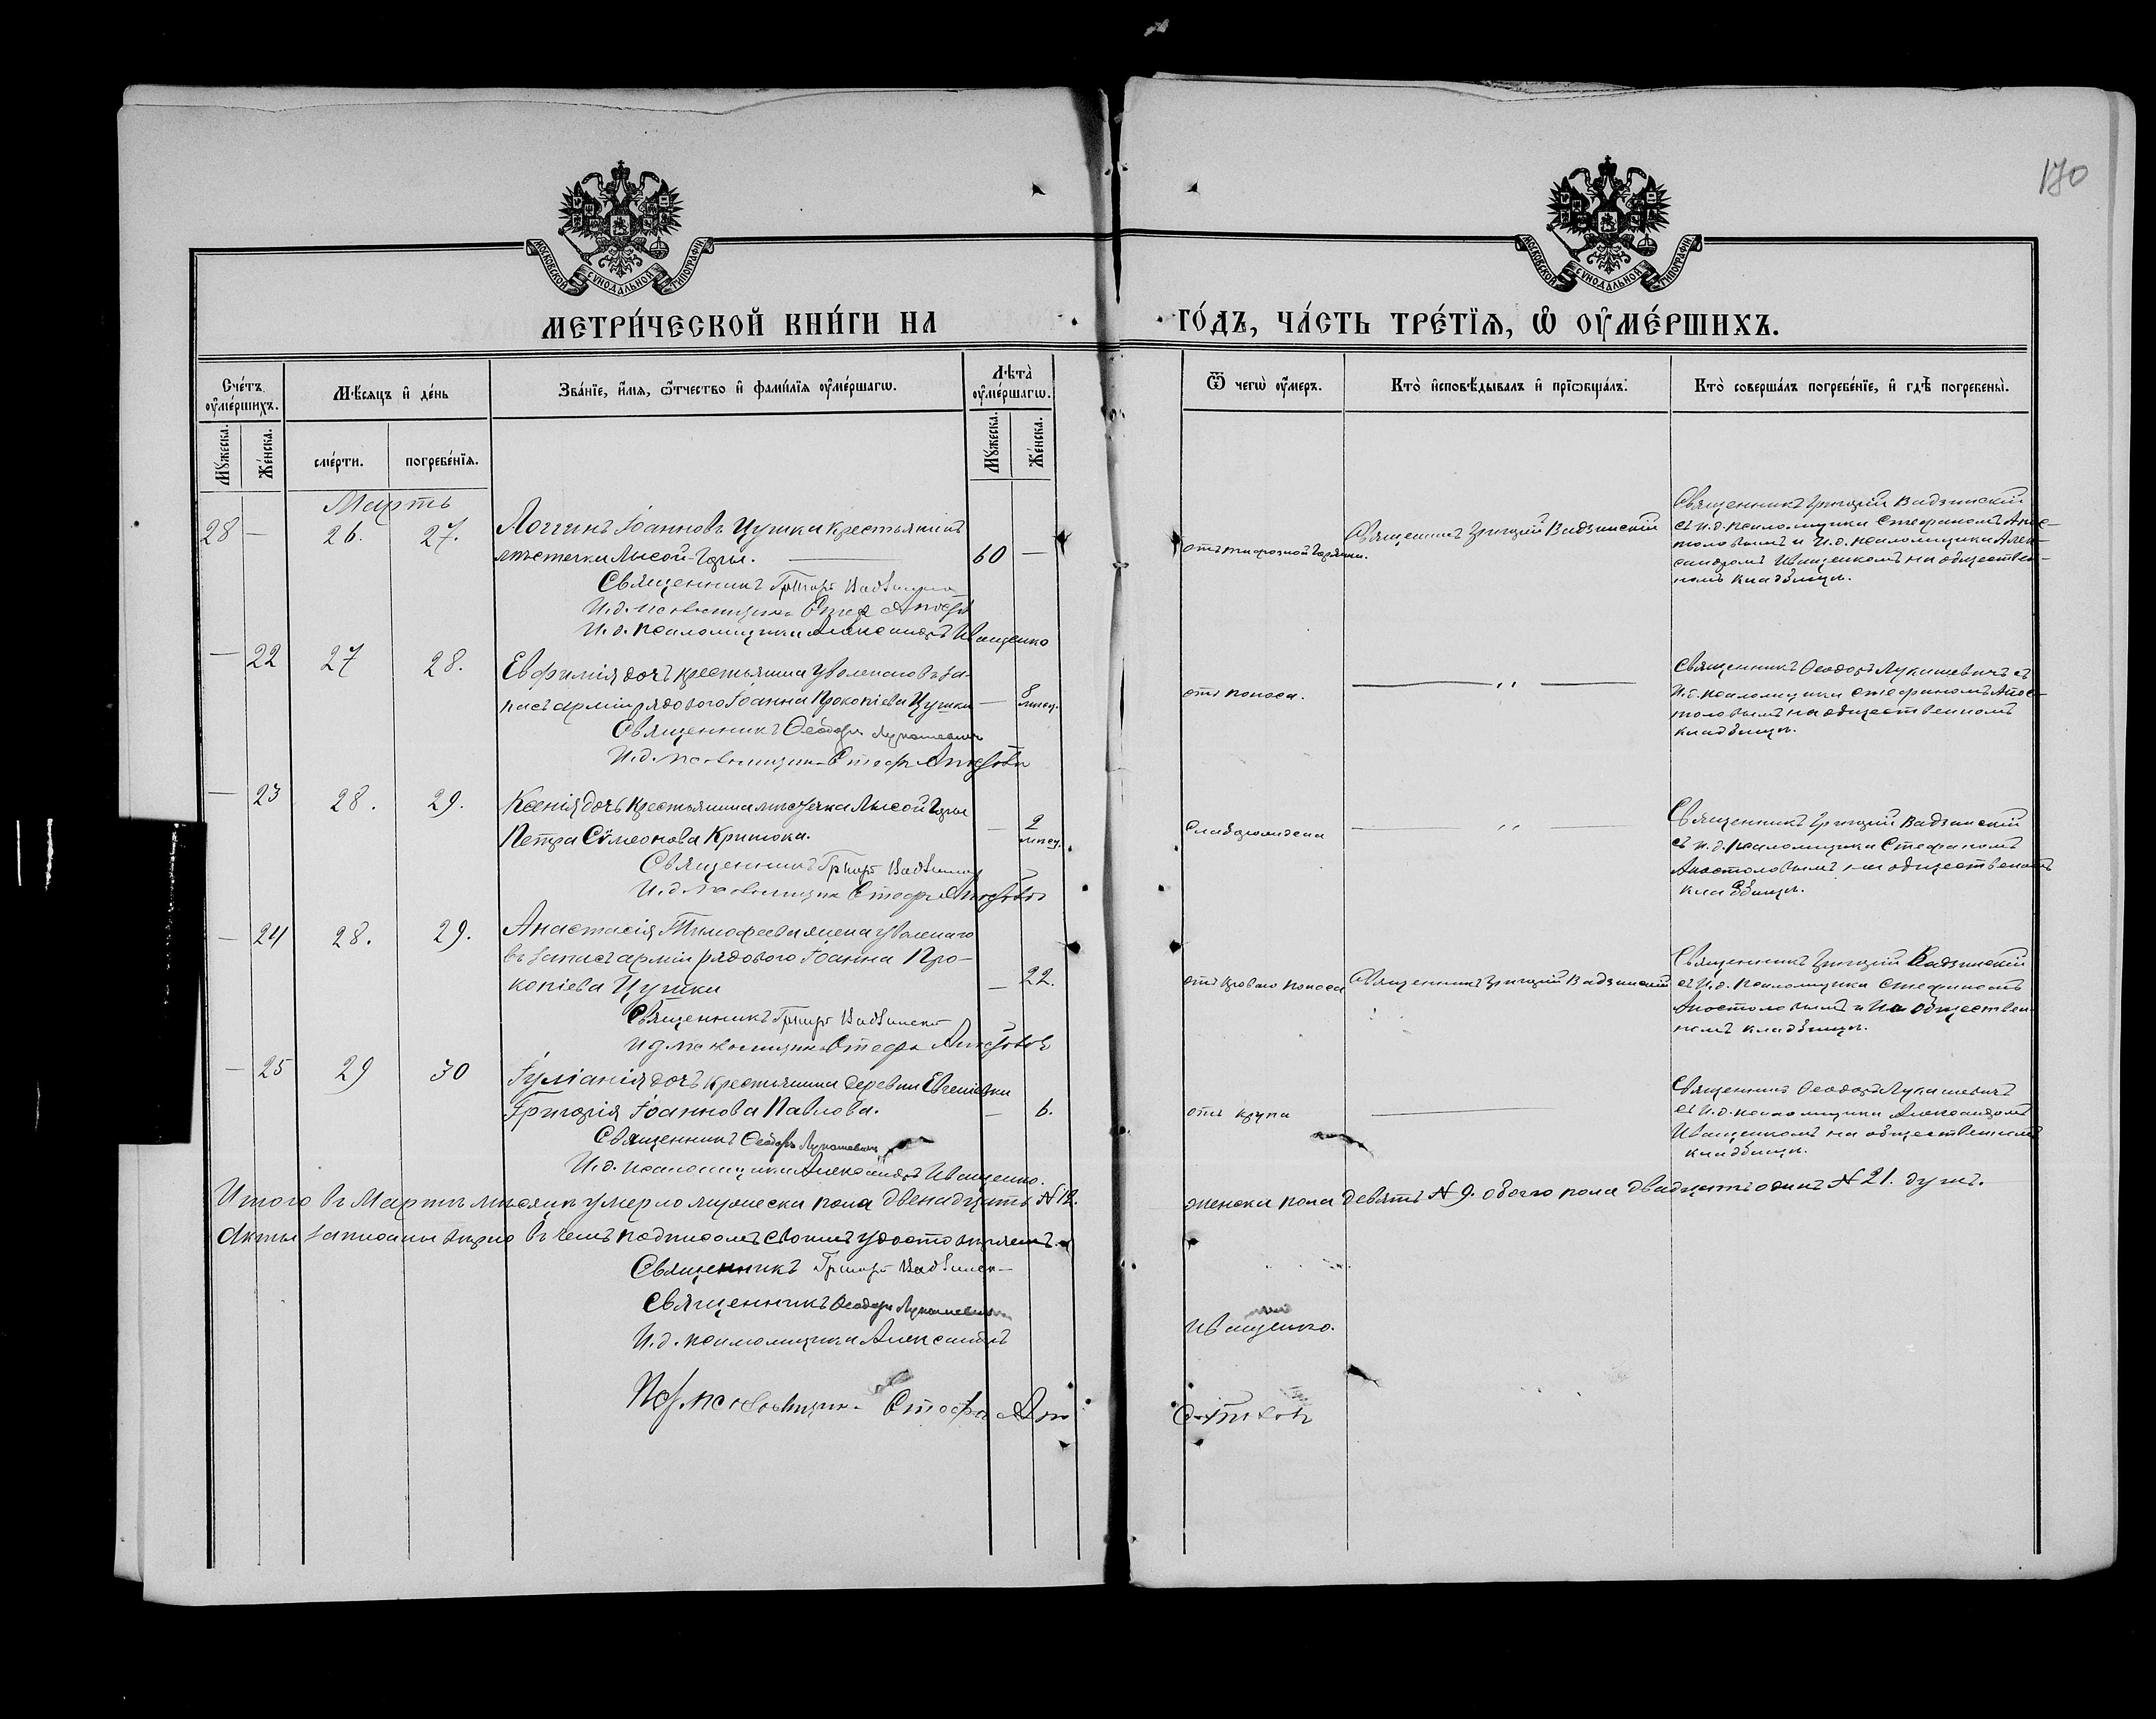 170
МОСКОВСКОЙ СУНОДАЛЬНОЙ ТИПОГРАФІИ
МОСКОВСКОЙ СУНОДАЛЬНОЙ ТИПОГРАФІИ
МЕТРИ́ЧЕСКОЙ КНИ́ГИ НА
ГО́ДЪ, ЧА́СТЬ ТРЕ́ТЇѦ, Ѽ ОУ҆МЕ́РШИХЪ.
Сче́тъ оу҆ме́ршихъ.
Мꙋ́жеска.
Же́нска.
Мѣ́сяцъ и҆ де́нь
сме́рти.
погребе́нїѧ.
Зва́нїе, и҆́мѧ, ѻ҆́тчество и҆ фами́лїѧ оу҆ме́ршагѡ.
Лѣ́та оу҆ме́ршагѡ.
Мꙋ́жеска.
Же́нска.
Ѿ чегѡ̀ оу҆́меръ.
Кто̀ и҆сповѣ́дывалъ и҆ прїѡбща́лъ.
Кто̀ соверша́лъ погребе́нїе, и҆ гдѣ̀ погребены̀.
Мартъ
28 — 26. 27.
Логгинъ Іоанновъ Цушка крестьянинъ
мѣстечка Лысой-Горы. — 60 —
Священникъ Григорій
И.д. псаломщика Стеф
И.д. псаломщика Александръ Иващенко
отъ тифозной горячки.
Священникъ Григорій Вадзинскій
Священникъ Григорій Вадзинскій
съ и.д. псаломщика Стефаномъ Апос-
толовымъ и И.д. псаломщика Алек-
сандромъ Иващенкомъ на обществен-
номъ кладбищѣ.
— 22 27 28.
Евфимія дочь крестьянина уволенаго въ за-
пасъ арміи рядового Іоанна Прокопіева Цушки — 8 мѣсяц.
Священникъ Ѳеодоръ Лукашевичъ
И.д. псаломщика Стеф Апостоловъ
отъ поноса.
— „ —
Священникъ Ѳеодоръ Лукашевичъ съ
И.д. псаломщика Стефаномъ Апос-
толовымъ на общественномъ
кладбищѣ.
— 23 28. 29.
Ксенія дочь крестьянина мѣстечка Лысой Горы
Петра Сѵмеонова Критока. —
мѣсяц.
Священникъ Григорій
И.д. псаломщика Стеф Апостоловъ
Слаборождена
— „ —
Священникъ Григорій Вадзинскій
съ и.д. псаломщика Стефаномъ
Апостоловымъ на общественомъ
кладбищѣ.
— 24 28. 29.
Анастасія Тимофеева жена уволенаго
въ запасъ арміи рядового Іоанна Про-
копіева Цушки — 22.
Священникъ Григорій
И.д. псаломщика Стефа Апостоловъ
отъ кроваго поноса
Священникъ Григорій Вадзинскій
Священникъ Григорій Вадзинскій
съ И.д. псаломщика Стефаномъ
Апостоловымъ и На обществен-
номъ кладбищѣ.
— 25 29 30
Іуліанія дочь крестьянина деревни Евгеніевки
Григорія Іоаннова Павлова. — 6.
Священникъ Ѳеодоръ Лукашевичъ
И.д. псаломщика Александръ Иващенко.
отъ крупа
—
Священникъ Ѳеодоръ Лукашевичъ
съ И.д. псаломщика Александромъ
Иващенкомъ на общественномъ
кладбищѣ.
Итого въ Мартѣ мѣсяцѣ умерло мужеска пола двенадцать № 12.
женска пола девять № 9. обоего пола двадцать одинъ № 21. душъ.
Акты записаны вѣрно въ чемъ подписомъ своимъ удостовѣряемъ.
Священникъ Григорій
Священникъ Ѳеодоръ Лукашевичъ
И.д. псаломщика Александръ
Иващенко.
И.д. псаломщика Стефа Апо
столовъ